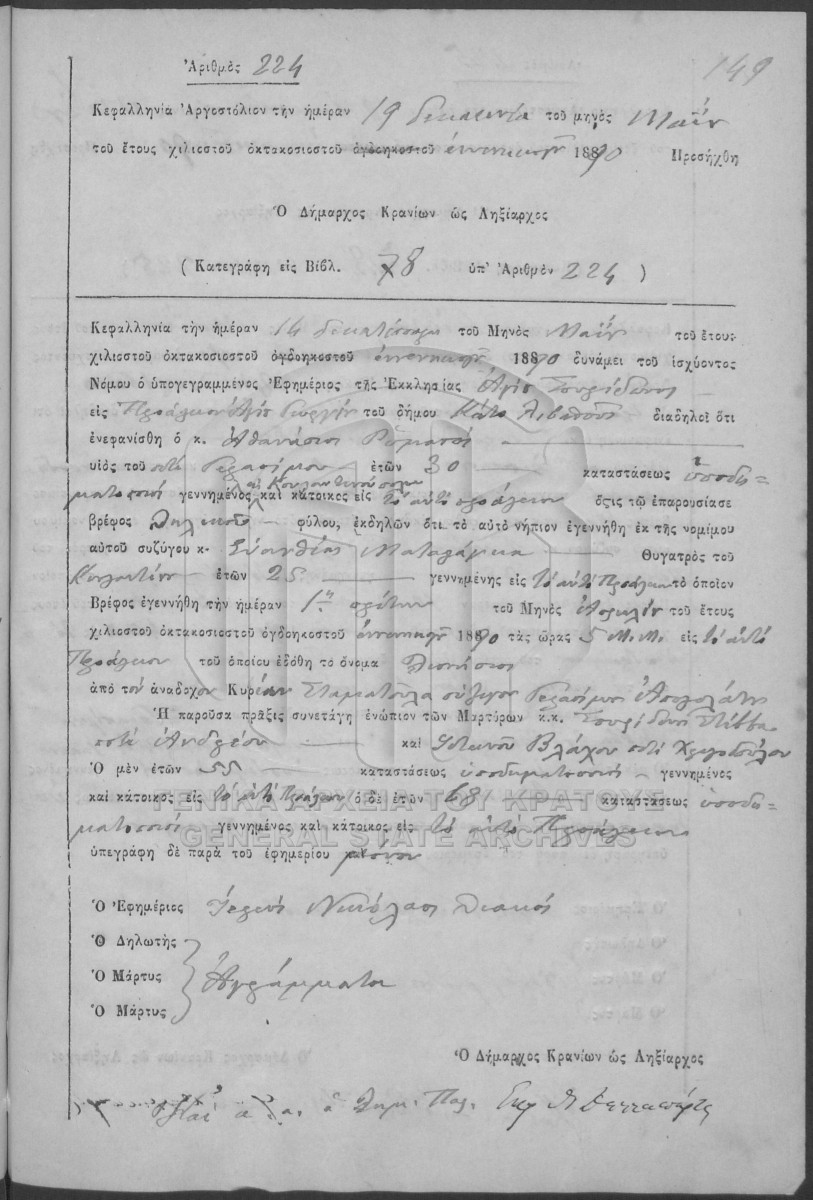 Ἀριθμὸς 224
149
Κεφαλληνία Ἀργοστόλιον τὴν ἡμέραν 19 δεκαεννέα τοῦ μηνὸς Μαΐου
τοῦ ἔτους χιλιοστοῦ ὀκτακοσιοστοῦ ὀγδοηκοστοῦ ἐννενηκοστοῦ 1890 Προσήχθη
Ὁ Δήμαρχος Κρανίων ὡς Ληξίαρχος
( Κατεγράφη εἰς Βίβλ. 78 ὑπ' Ἀριθμὸν 224 )
Κεφαλληνία τὴν ἡμέραν 14 δεκατέσσαρες τοῦ Μηνὸς Μαΐου τοῦ ἔτους
χιλιοστοῦ ὀκτακοσιοστοῦ ὀγδοηκοστοῦ ἐννενηκοστοῦ 1890 δυνάμει τοῦ ἰσχύοντος
Νόμου ὁ ὑπογεγραμμένος Ἐφημέριος τῆς Ἐκκλησίας Ἁγίου Σπυρίδωνος
εἰς Προάστειον Ἁγίου Γεωργίου τοῦ δήμου Κάτω Λιβαθοῦς διαδηλοῖ ὅτι
ἐνεφανίσθη ὁ κ. Ἀθανάσιος
υἱὸς τοῦ ποτὲ Γερασίμου ἐτῶν 30 καταστάσεως ὑποδη-
ματοποιὸς γεννημένος καὶ κάτοικος εἰς τὸ αὐτὸ προάστειον ὅςις τῷ ἐπαρουσίασε
βρέφος θηλυκοῦ φύλου, ἐκδηλῶν ὅτι τὸ αὐτὸ νήπιον ἐγεννήθη ἐκ τῆς νομίμου
αὐτοῦ συζύγου κ. Εὐανθίας Ματαράγκα Θυγατρὸς τοῦ
Κωνσταντίνου ἐτῶν 25 γεννημένης εἰς τὸ αὐτὸ Προάστειον τὸ ὁποῖον
Βρέφος ἐγεννήθη τὴν ἡμέραν 1ην πρώτην τοῦ Μηνὸς Ἀπριλίου τοῦ ἔτους
χιλιοστοῦ ὀκτακοσιοστοῦ ὀγδοηκοστοῦ ἐννενηκοστοῦ 1890 τὰς ὥρας 5 Μ.Μ. εἰς τὸ αὐτὸ
Προάστειον τοῦ ὁποίου ἐδόθη τὸ ὄνομα
ἀπὸ τὸν ἀνάδοχον Κυρίαν Σταματούλα σύζυγον Γερασίμου Ἀπολλάτου
Ἡ παροῦσα πρᾶξις συνετάγη ἐνώπιον τῶν Μαρτύρων κ.κ. Σπυρίδωνος
ποτὲ Ἀνδρέου καὶ Βλάχου ποτὲ Χριστοδούλου
Ὁ μὲν ἐτῶν 55 καταστάσεως ὑποδηματοποιὸς γεννημένος
καὶ κάτοικος εἰς τὸ αὐτὸ Προάστειον ὁ δὲ ἐτῶν 68 καταστάσεως ὑποδη-
ματοποιὸς γεννημένος καὶ κάτοικος εἰς τὸ αὐτὸ Προάστειον
ὑπεγράφη δὲ παρὰ τοῦ ἐφημερίου μόνον
Ὁ Ἐφημέριος Ἱερεὺς Νικόλαος
Ὁ Δηλωτὴς
Ὁ Μάρτυς Ἀγράμματοι
Ὁ Μάρτυς
Ὁ Δήμαρχος Κρανίων ὡς Ληξίαρχος
ΓΕΝΙΚΑ ΑΡΧΕΙΑ ΤΟΥ ΚΡΑΤΟΥΣ
GENERAL STATE ARCHIVES